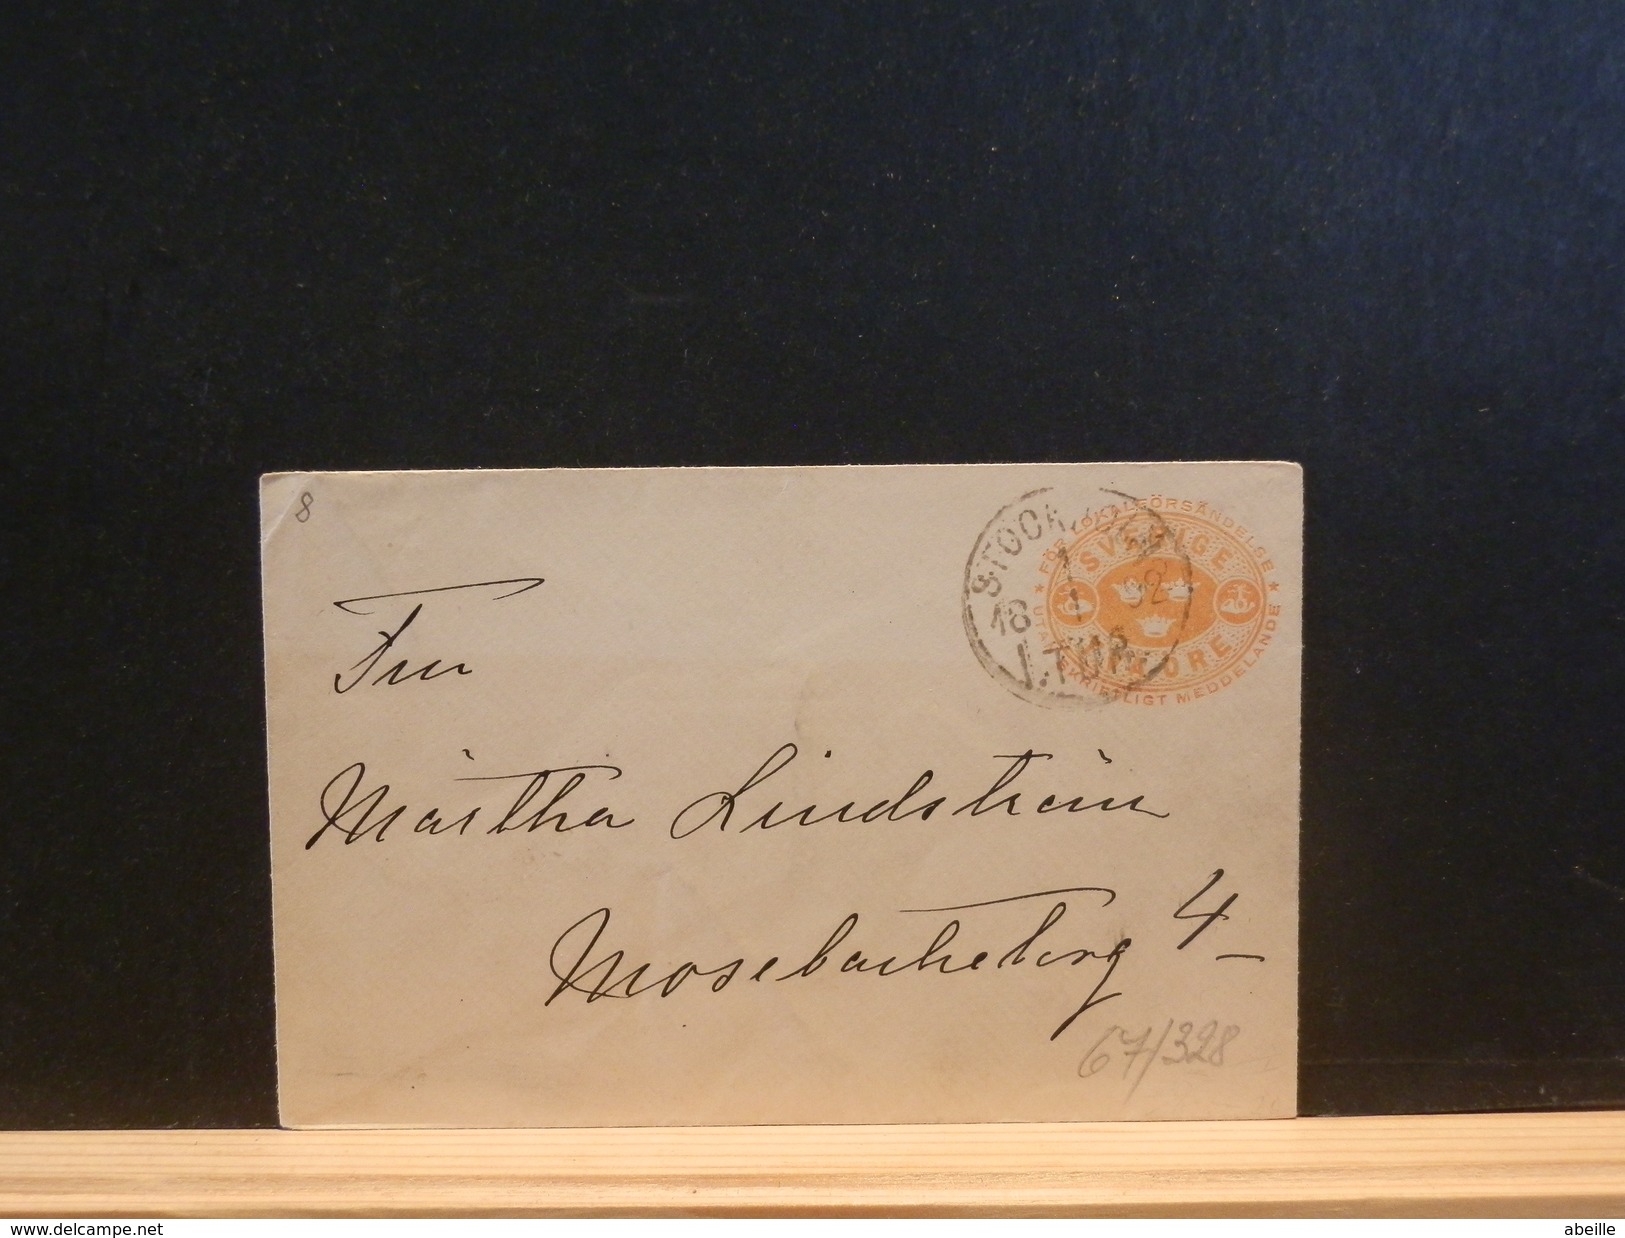 8
STOCKHOLM
1 1
18 92
1.TUR
FÖR LOKALFÖRSÄNDELSE
SVERIGE
ÖRE
UTAN SKRIFTLIGT MEDDELANDE
Fru
Märtha Lindström
Mosebacketorg 4
67/328
www.delcampe.net
abeille